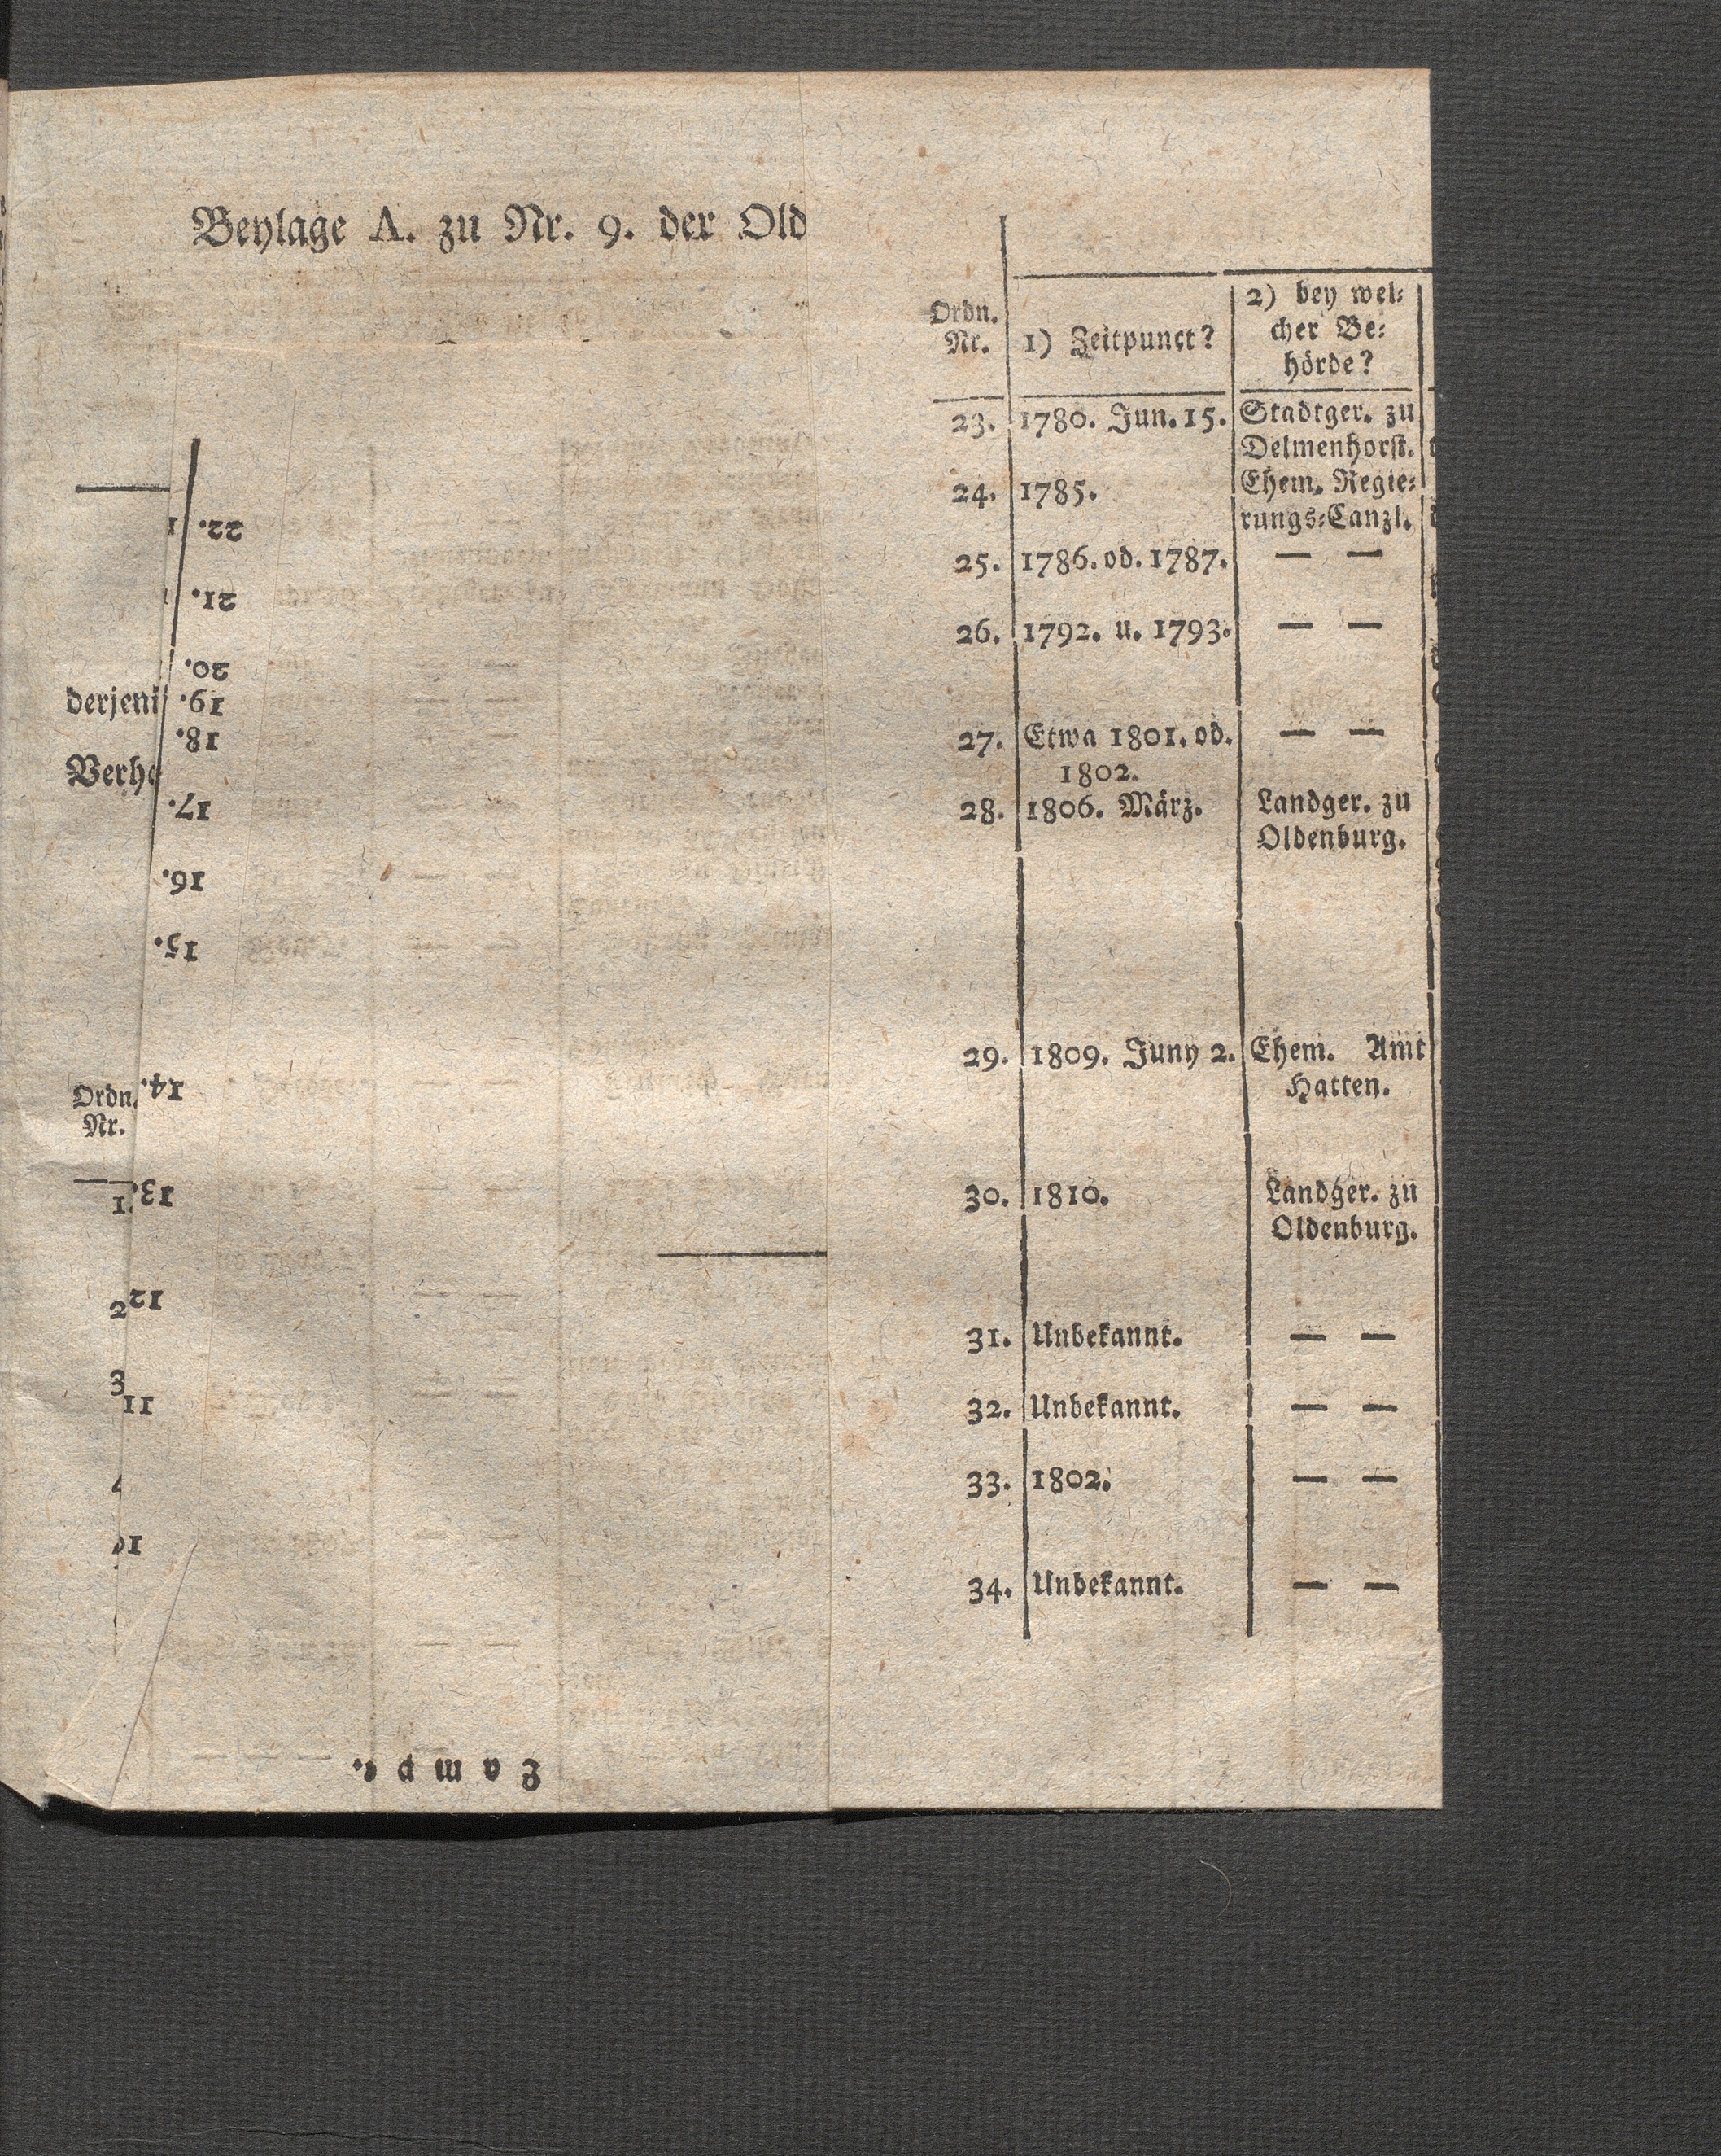 Beylage A. zu Nr. 9. der Old
derjeni
Verh
Ordn.
Nr.
1.
2
3
22.
21.
20.
19.
18.
17.
16.
15.
14.
13.
12
11
Zampe.
Ordn. Nr. 1) Zeitpunct? 2) bey wel⸗
cher Be⸗
hörde?
23. 1780. Jun. 15. Stadtger. zu
Delmenhorst.
24. 1785. Ehem. Regie⸗
rungs⸗Canzl.
25. 1786. od. 1787. — —
26. 1792. u. 1793. — —
27. Etwa 1801. od. — —
1802.
28. 1806. März. Landger. zu
Oldenburg.
29. 1809. Juny 2. Ehem. Amt
Hatten.
30. 1810. Landger. zu
Oldenburg.
31. Unbekannt. — —
32. Unbekannt. — —
33. 1802. — —
34. Unbekannt. — —